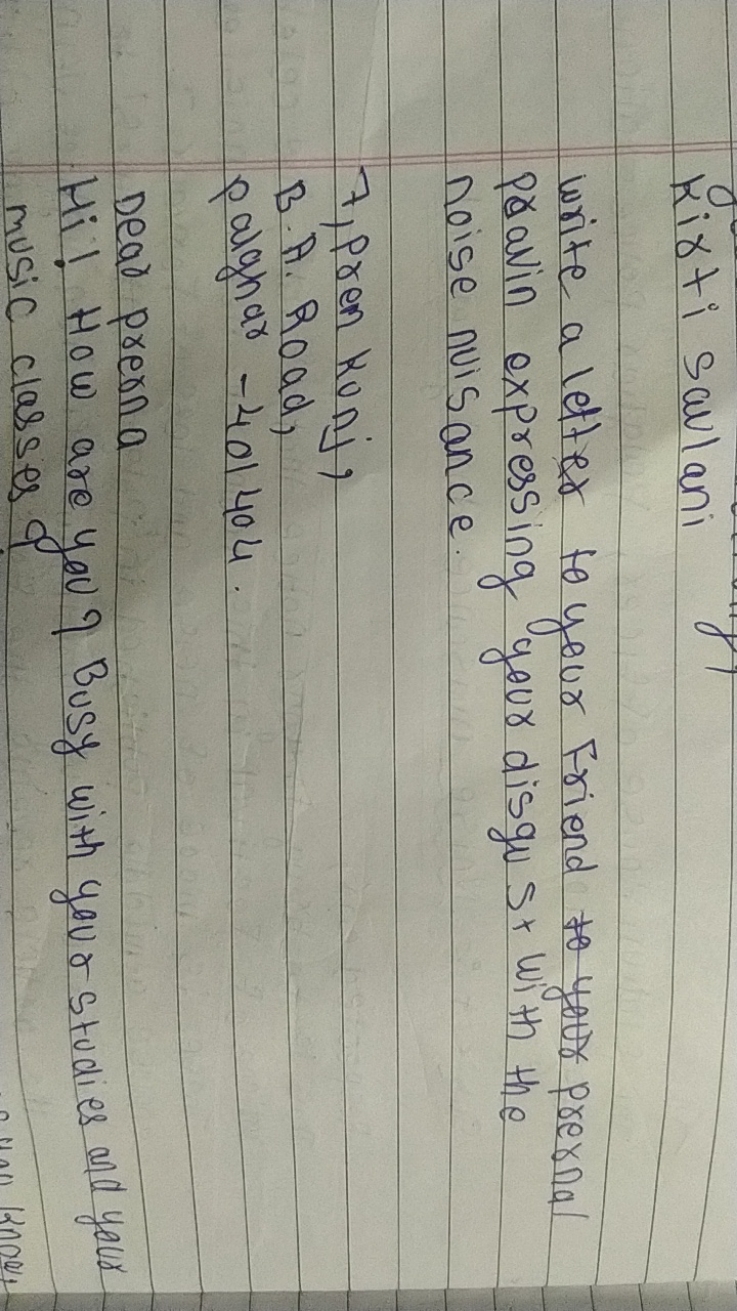 Kirti savlani
write a letter to your Friend to your prerna/
pravin expressing your disgust with the
noise nuisance.
7, pren kunj,
B.A. Road,
palghar - 401404.
Dear prerna
Hi! How are you? Busy with your studies and your
music classes